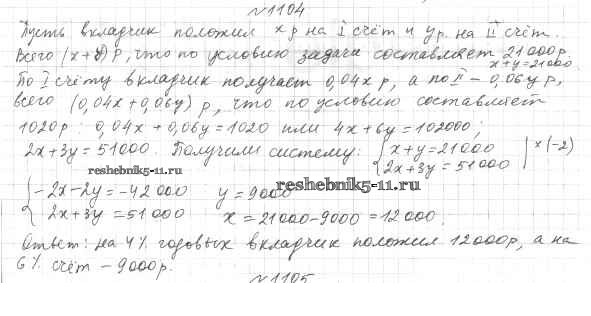 №1104
Пусть вкладчик положил x р на I счёт и y р. на II счёт.
Всего (x+y) р, что по условию задачи составляет 21000 р.
x+y=21000
По I счёту вкладчик получает 0,04x р, а по II – 0,06y р,
всего (0,04x+0,06y) р, что по условию составляет
1020 р: 0,04x+0,06y=1020 или 4x+6y=102000;
2x+3y=51000. Получили систему: { x+y=21000 | x(-2)
2x+3y=51000
reshebnik5-11.ru
{ -2x-2y=-42000 y=9000
reshebnik5-11.ru
2x+3y=51000 x=21000-9000=12000.
Ответ: на 4% годовых вкладчик положил 12000 р, а на
6% счёт – 9000 р.
№1105